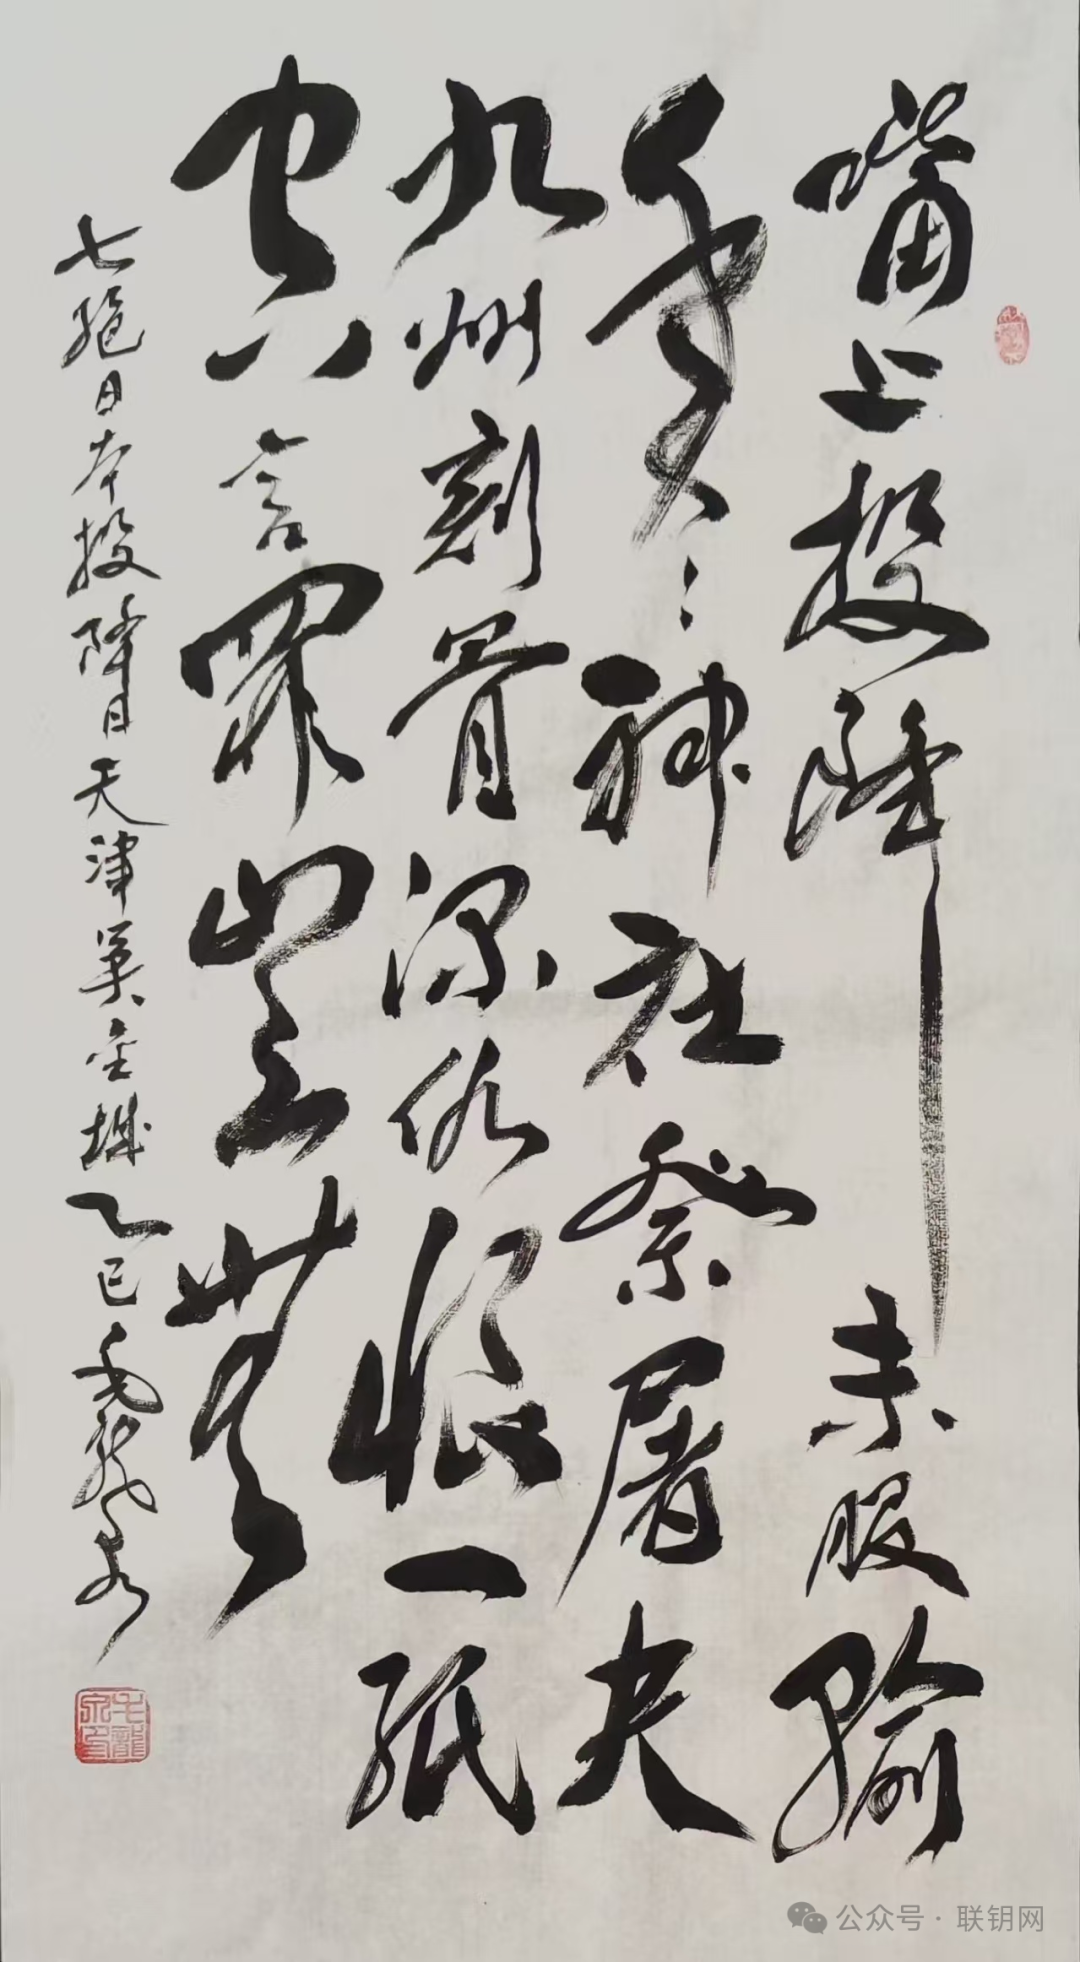 嘴上投降未服输
年々神社祭屠夫
九州刻骨深仇恨一纸
空言罪岂无
七绝日本投降日天津吴金城乙巳毛龙泉
公众号·联钥网